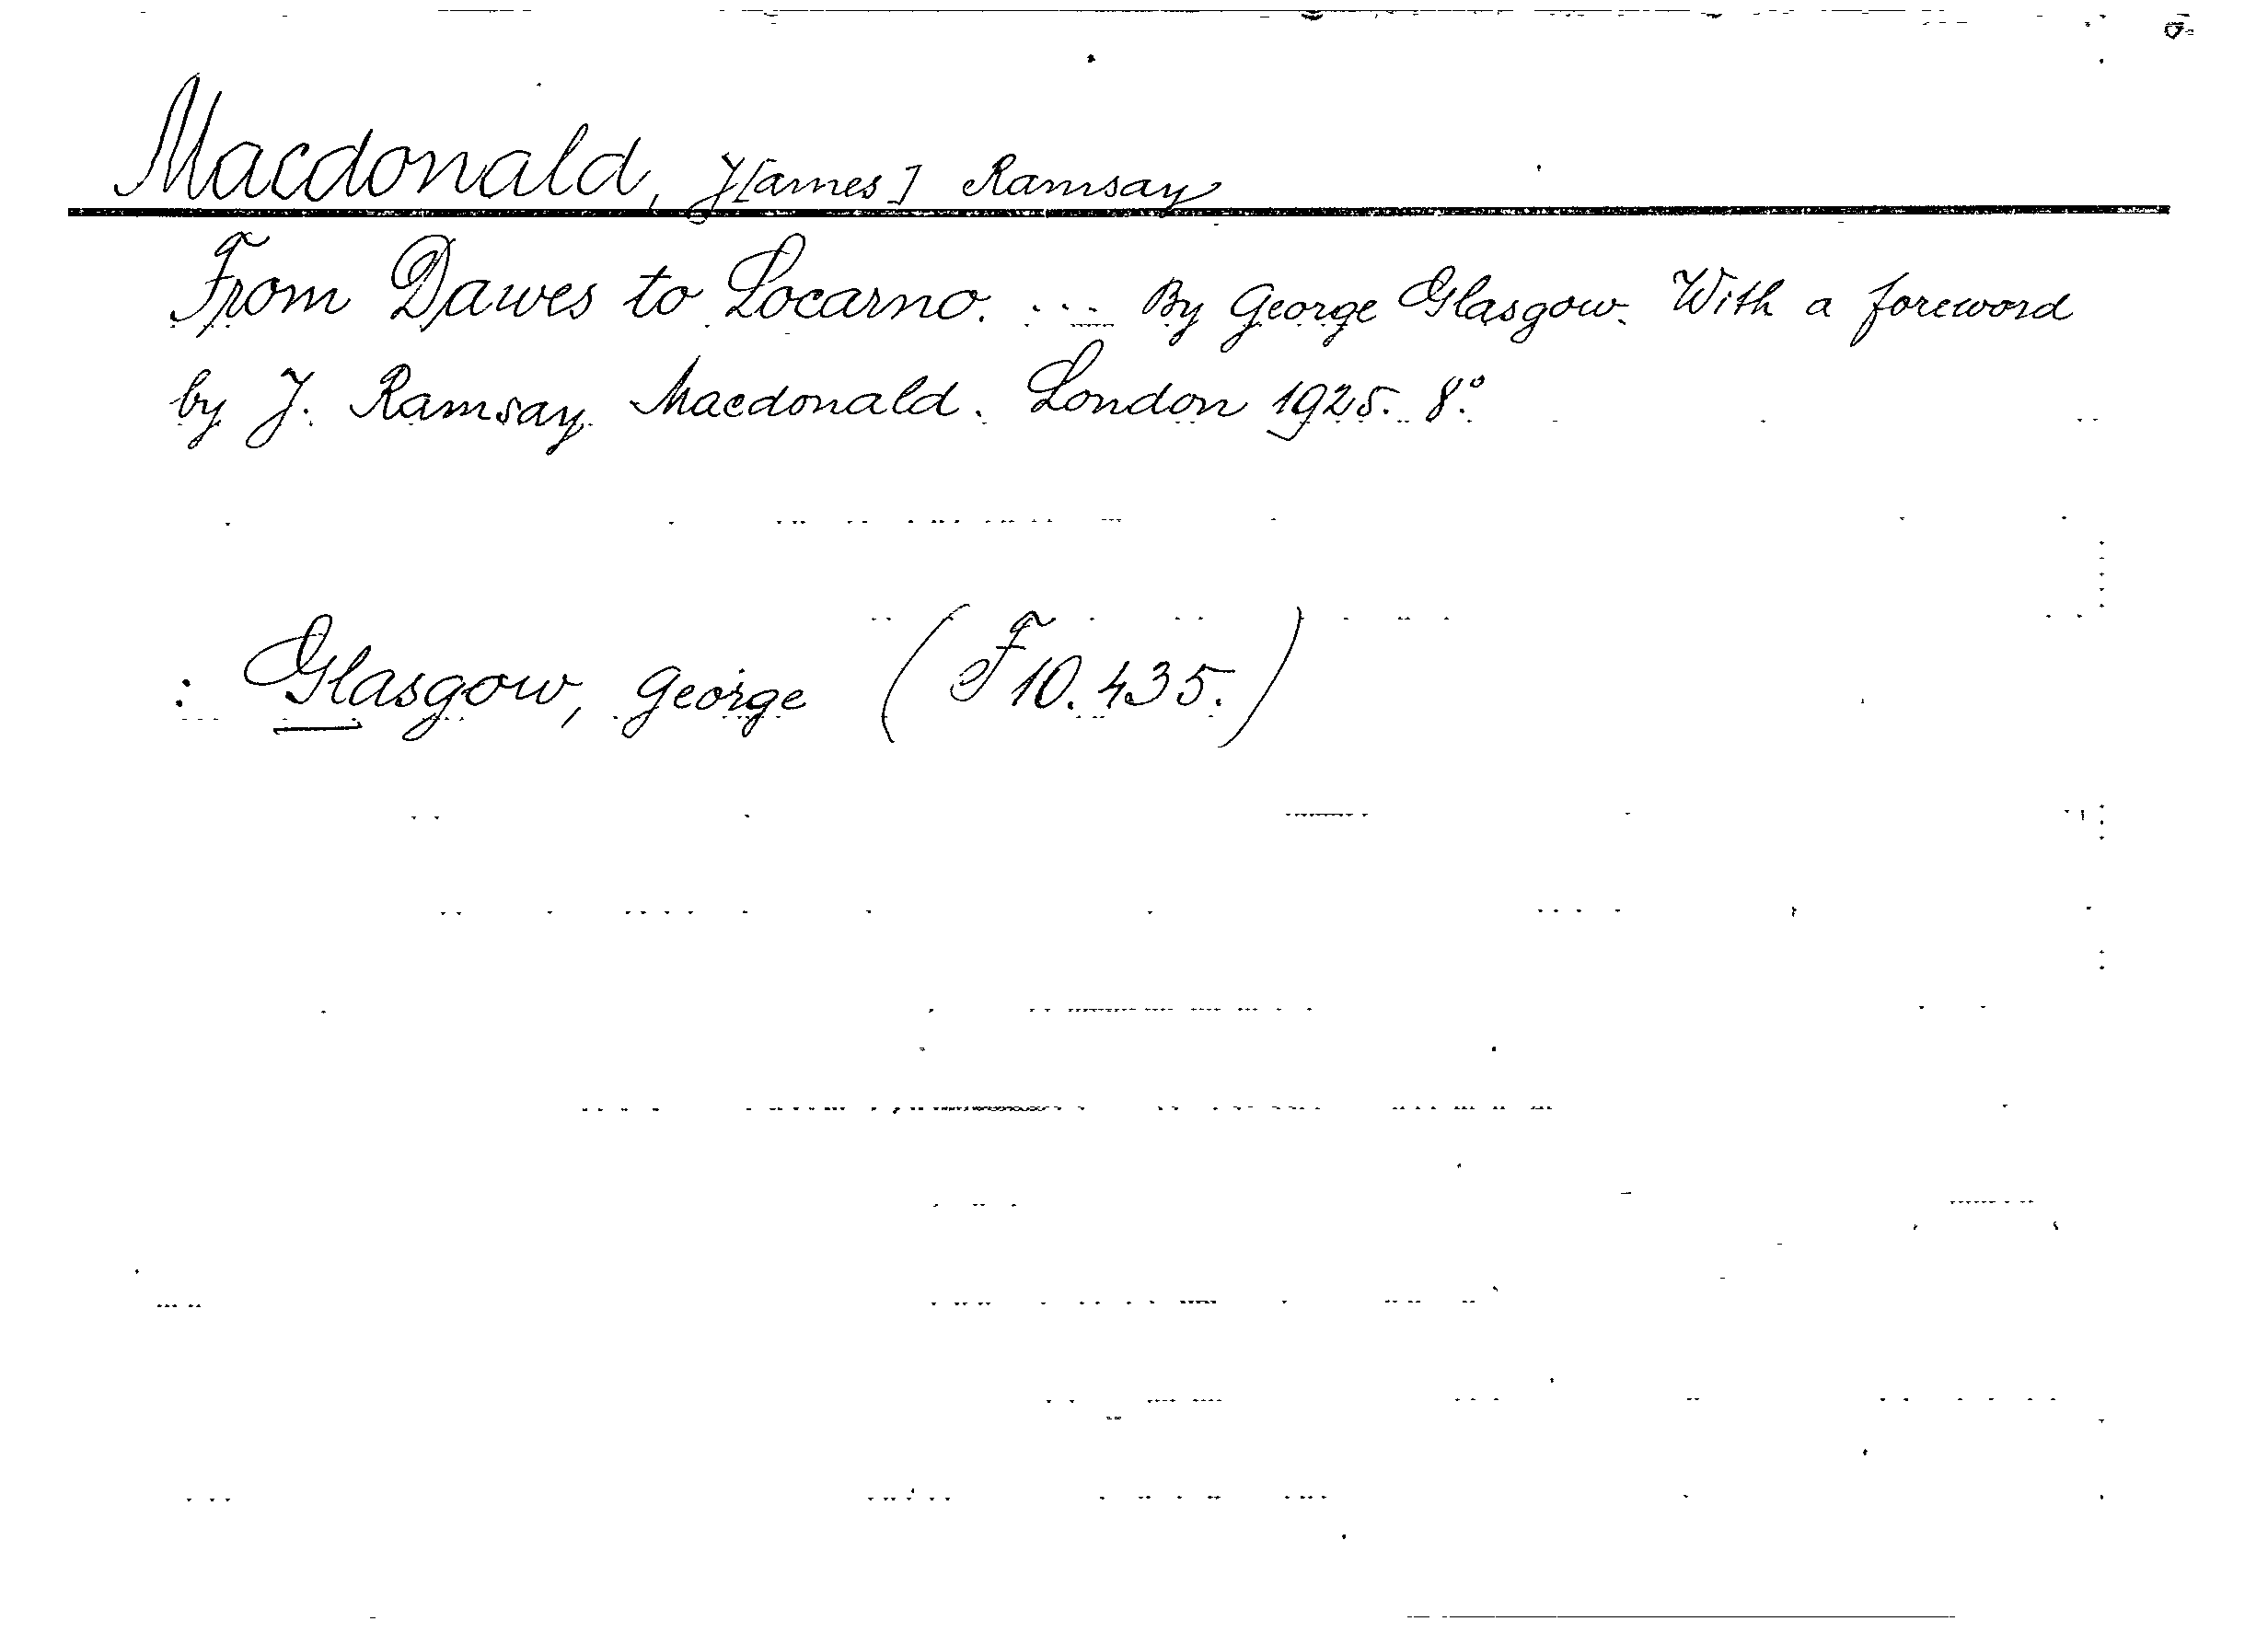 Macdonald, J[ames] Ramsay
From Dawes to Locarno. ... By George Glasgow. With a foreword
by J. Ramsay Macdonald. London 1925. 8°.
: Glasgow, George (F 10.435.)